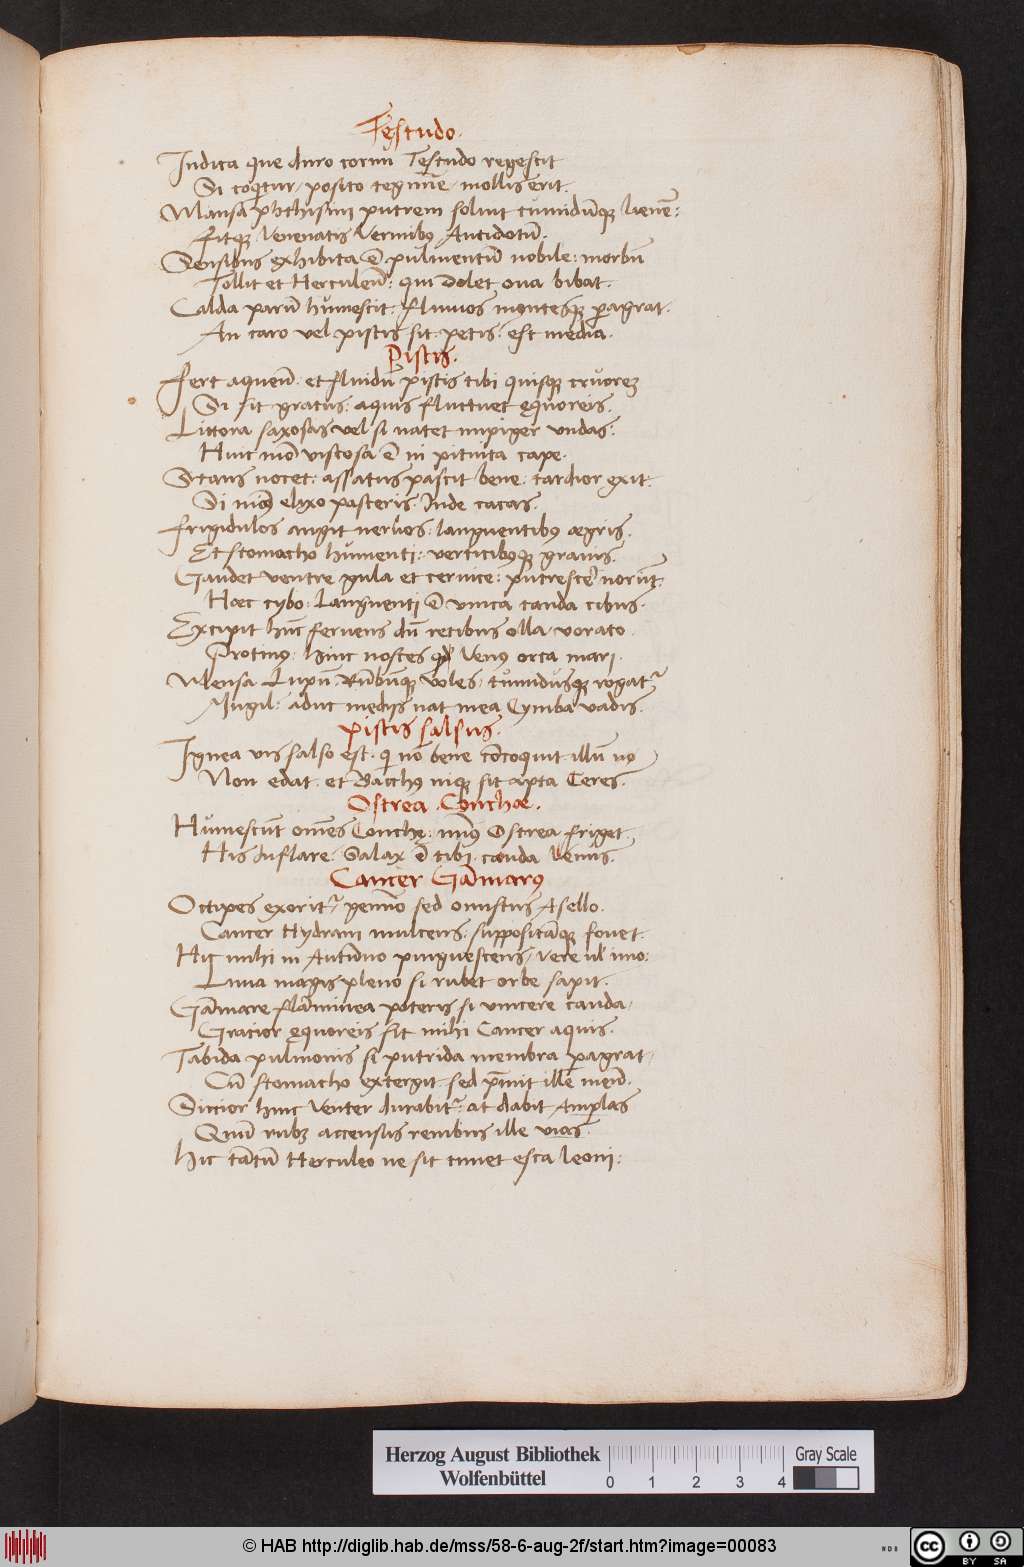 Testudo.
Indica que duro cornu Testudo regescit
Si coqtur, posito tegmīe, mollis erit.
Mansa phthisim putrem soluit tumidāq; lienē:
Fitq; Venenatis Vermibꝰ Antidotū.
Sensibus exhibita ē pulmentū nobile: morbū
Tollit et Herculeū: qui dolet oua bibat.
Calda parū humescit: fluuios montesq; ꝑagrat.
An caro vel piscis sit petis: est media.
Piscis.
Fert aqueū et fluidū piscis tibi quisq; cruorē
Si sit gratus: aquis fluctuet equoreis.
Littora saxosas vel si natet impiger vndas:
Huic nīo viscosa ē ni pituita cape.
Stans nocet: assatus pascit bene: tardior exit:
Si nimiꝰ elixo pasceris. Inde cacas.
Frigidulos angit neruos: languentibꝰ ægris.
Et stomacho humenti: verticibꝰq; grauis.
Gaudet ventre gula et ceruice: putrescē norūt
Hæc cybo: Languenti ē vnica cauda cibus.
Excipit hūc feruens dū retibus olla vorato
Protinꝰ: hinc nosces qd Venus orca mari.
Mensa Lupū Rūbūq; voles, tumidusq; rogatʳ
Mugil: aduc medijs nat mea Cymba vadis.
piscis salsus.
Ignea vis salso est: qi nō bene cōcoquit illū
Non edat et Bacchꝰ niq; sit apta Ceres.
Ostrea. Conchæ.
Humescūt oēs Conche: nimiꝰ Ostrea friget.
His Inflare: Salax ē tibi cauda Venus.
Cancer Gāmarꝰ
Octipes exoritʳ gemino sed onustus Asello.
Cancer Hydram mulcens: suppositāq; fouet.
Hic mihi in Autūno pinguescens, vere ul imo:
Luna magis pleno si rubet orbe sapit.
Gāmare flāminea poteris si vincere cauda,
Gratior equoreis sit mihi Cancer aquis.
Tabida pulmonis si putrida membra ꝑagrat,
Cū stomacho extergit sed p̄mit ille meū.
Siccior hinc Venter durabitʳ: at dabit Amplas
Quū rubꝫ accensus renibus ille vias.
Hic tātū Herculeo ne sit timet esca leoni:
Herzog August Bibliothek
Wolfenbüttel
0 1 2 3 4
Gray Scale
© HAB http://diglib.hab.de/mss/58-6-aug-2f/start.htm?image=00083
cc BY SA